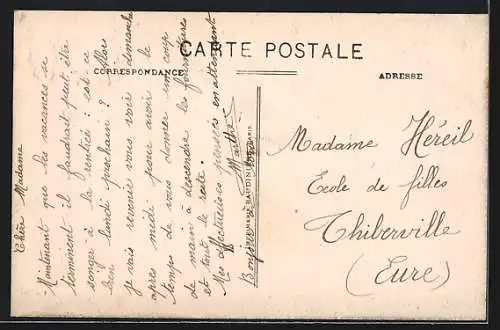 CARTE POSTALE
CORRESPONDANCE
ADRESSE
Chère Madame
Maintenant que les vacances se
terminent il faudrait peut être
songer à la rentrée : est ce
bien lundi prochain ? Alors
je vais revenir vous voir dimanche
après midi pour avoir le
temps de vous donner un coup
de main à descendre les fournitures
et tout le reste.
Mes affectueuses pensées en attendant
Marthe
Bonjour à
BAUDINIÈRE
PARIS
Madame Héreil
Ecole de filles
Thiberville
(Eure)